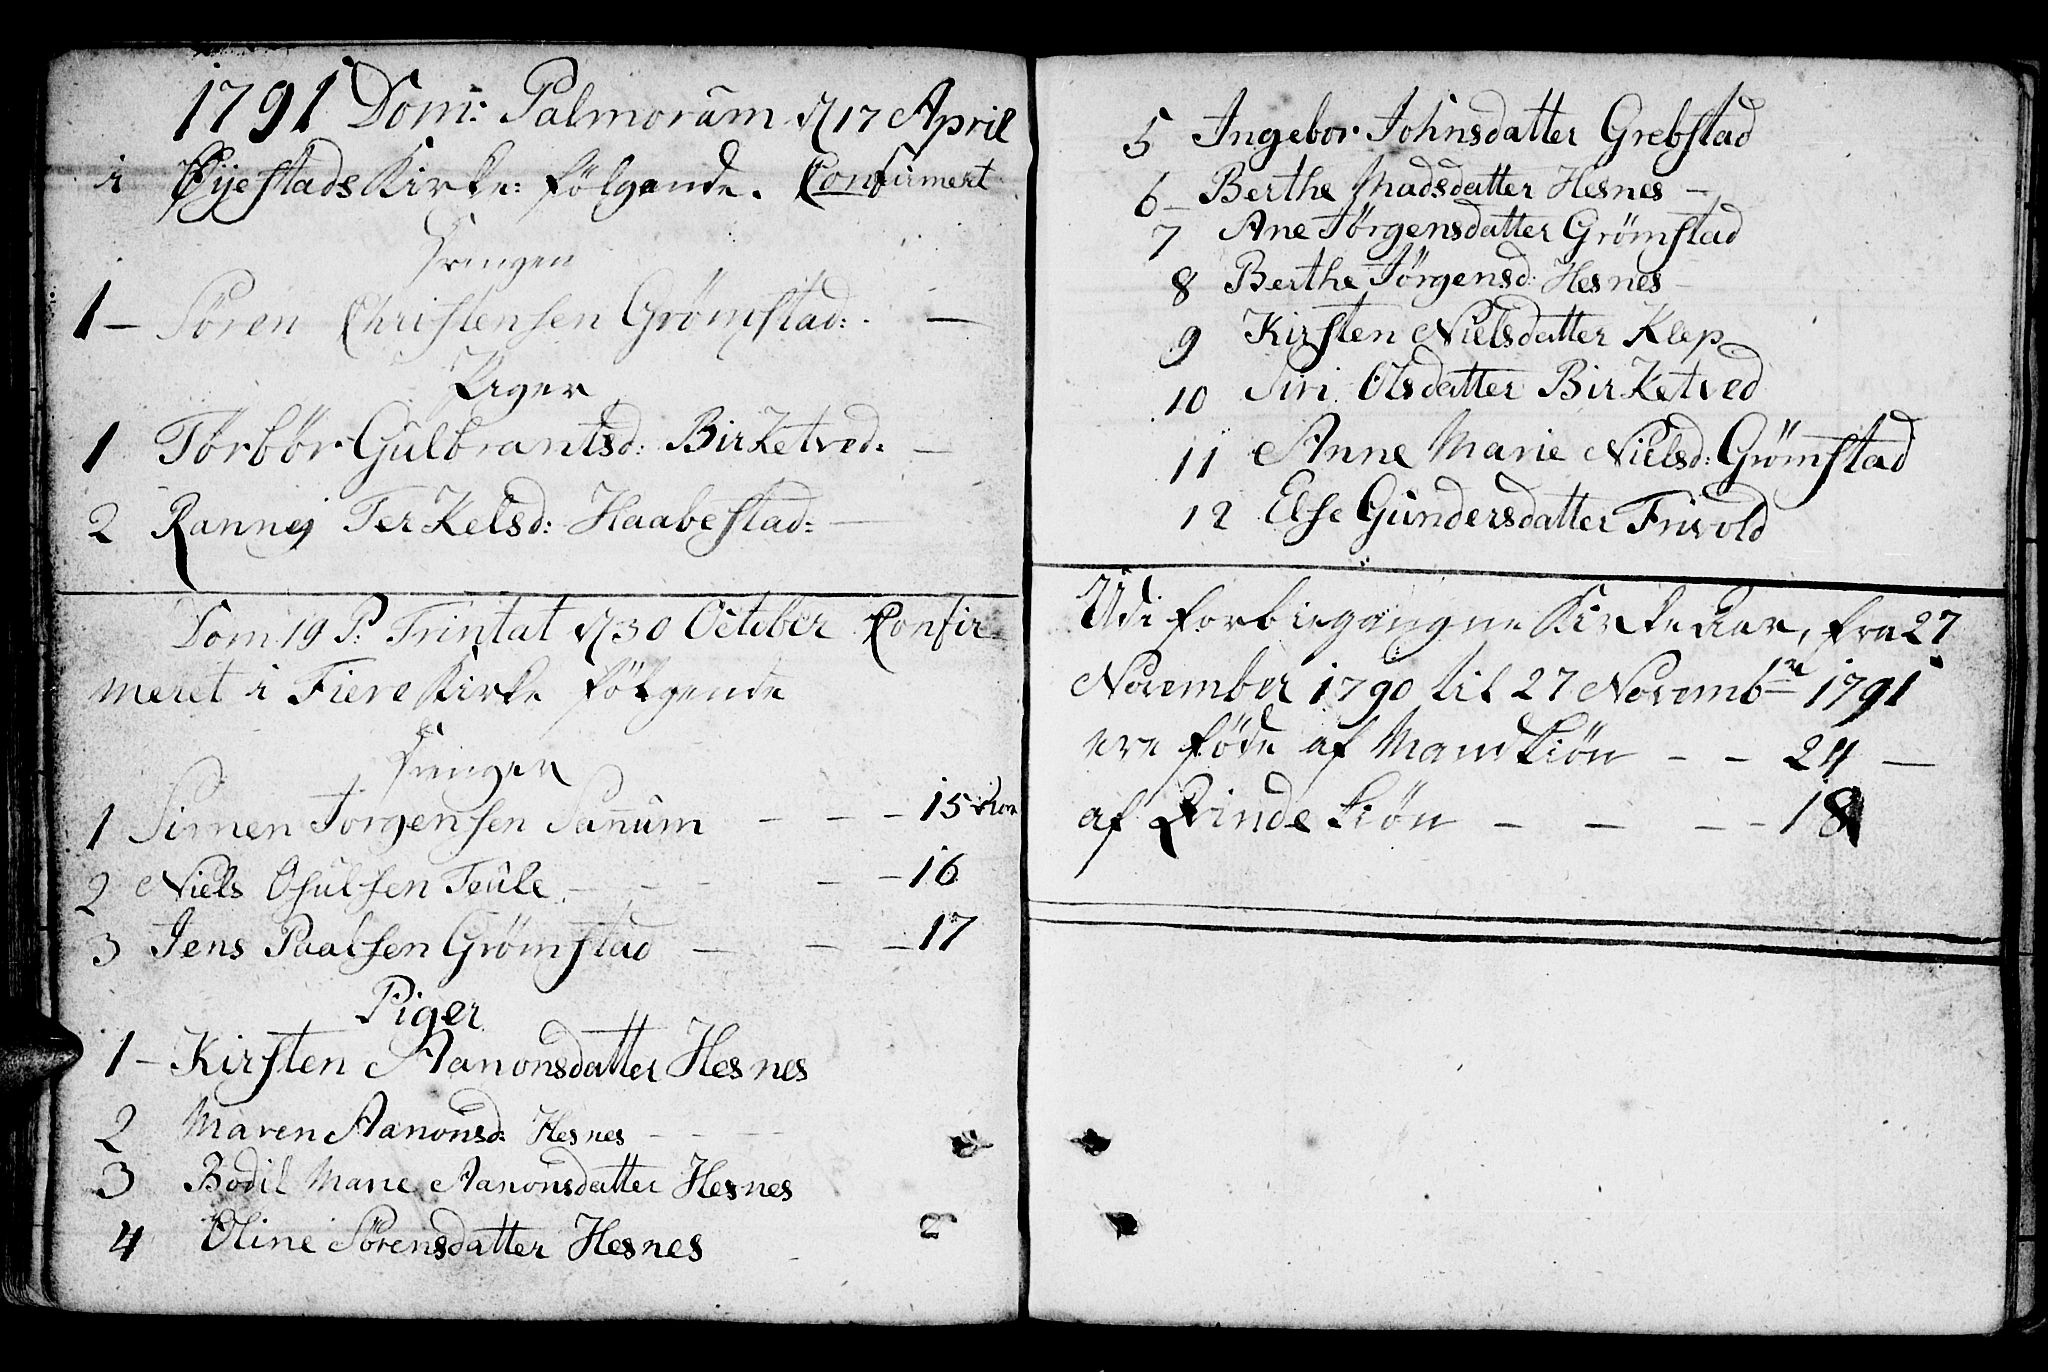 1791 Dom: Palmorum d 17 April
i Øijestads Kirke: følgende. Confirmert
Drengen
1 – Søren Christensen Grømstad: –
Piger
1 Tørbør Gulbrantsd: Birketved: –
2 Ranne Terkelsd: Haabestad: –
Dom 19 P: Trintat d 30 October Confir-
meret i Fiere Kirke følgende
Drenger
1 Simen Jørgensen Sanum – – – 15
2 Niels Osulsen Teule – – – – – 16
3 Jens Paalsen Grømstad – – – 17
Piger
1 – Kirsten Aanonsdatter Hesnes
2 Maren Aanonsd: Hesnes – – – –
3 Bodil Marie Aanonsdatter Hesnes
4 Oline Sørensdatter Hesnes
5 Ingebor Johnsdatter Grebstad
6 – Berthe Madsdatter Hesnes –
7 Ane Jørgensdatter Grømstad
8 Berthe Jørgensd: Hesnes –
9 Kirsten Nielsdatter Klep
10 Siri Olsdatter Birketved
11 Anne Marie Nielsd: Grømstad
12 Else Gundersdatter Frivold
Udi forbiegangne Kirke Aar, fra 27
November 1790 til 27 Novembr 1791
ere føde af Mandkiøn – – 24 –
af Qvindekiøn – – – – 18